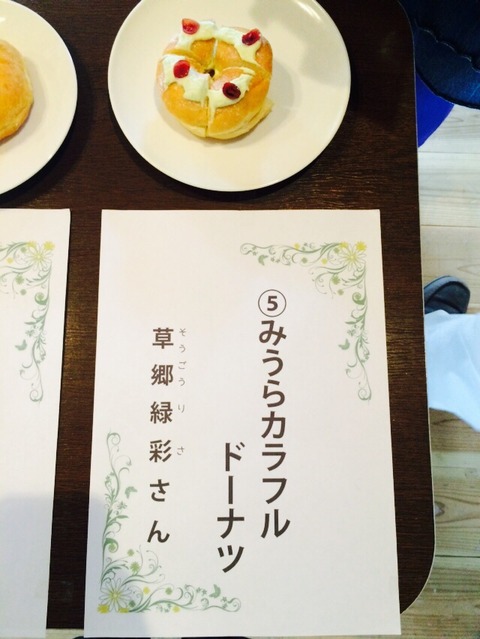 ⑤みうらカラフル
ドーナツ
そうごうりさ
草郷緑彩さん